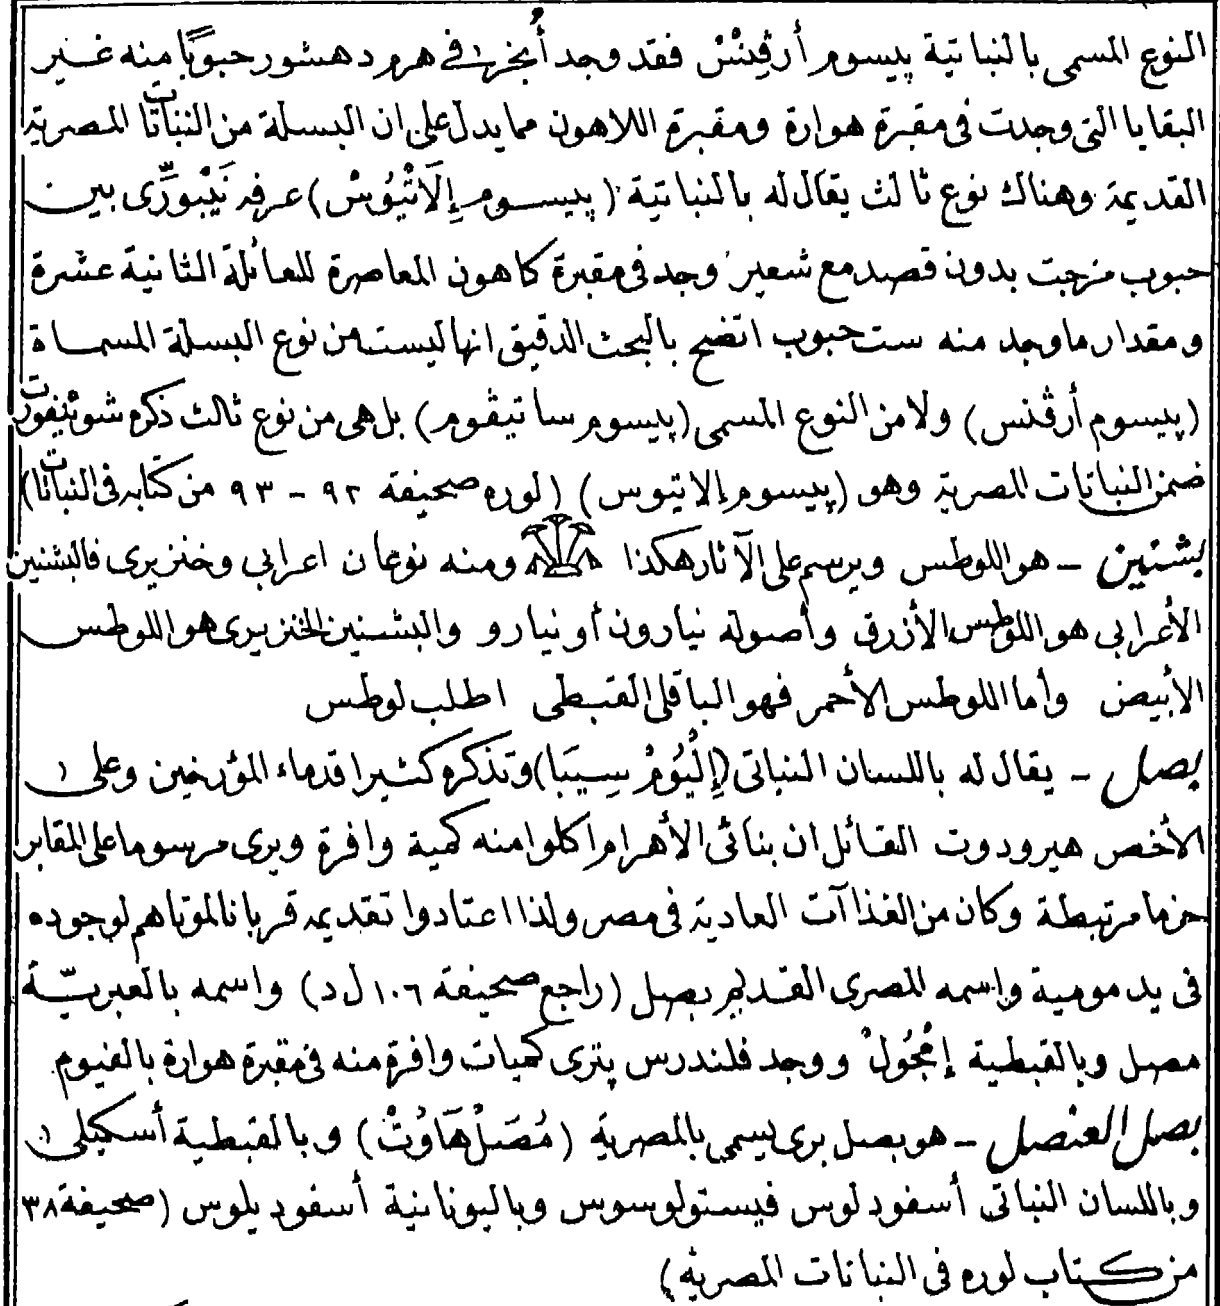 النوع المسمى بالنباتية پيسوم أرڤِنْسْ فقد وجد أُنجر في هرم دهشور حبوبًا منه غير
البقايا التى وجدت فى مقبرة هوارة ومقبرة اللاهون مما يدل على ان البسلة من النباتات المصرية
القديمة وهناك نوع ثالث يقال له بالنباتية (پيسوم إِلَاتْيُوسْ) عرفه نَيْبورِّى بين
حبوب مزجت بدون قصد مع شعير وجد فى مقبرة كاهون المعاصرة للعائلة الثانية عشرة
ومقدار ماوجد منه ست حبوب اتضح بالبحث الدقيق انها ليست من نوع البسلة المسماة
(پيسوم أرڤنس) ولا من النوع المسمى (پيسوم ساتيڤوم) بل هى من نوع ثالث ذكره شوينفورت
ضمن النباتات المصرية وهو (پيسوم إلاتيوس) (لوره صحيفة ٩٢ - ٩٣ من كتابه فى النباتات)
بشنين - هو اللوطس ويرسم على الآثار هكذا ومنه نوعان اعرابى وخنزيرى فالبشنين
الأعرابى هو اللوطس الأزرق وأصوله نيارون أو نيارو والبشنين الخنزيرى هو اللوطس
الأبيض وأما اللوطس الأحمر فهو الباقلى القبطى اطلب لوطس
بصل - يقال له باللسان النباتى (إِلْيُومْ سِيبَا) وتذكره كثيرا قدماء المؤرخين وعلى
الأخص هيرودوت القائل ان بنائى الأهرام اكلوا منه كمية وافرة ويرى مرسوما على المقابر
حزما مرتبطة وكان من الغذاآت العادية فى مصر ولذا اعتادوا تقديمه قربانا لموتاهم لوجوده
فى يد مومية واسمه المصرى القديم بصل (راجع صحيفة ١٠٦ ل د) واسمه بالعبريّة
مصل وبالقبطية إمْجُولْ ووجد فلندرس پترى كميات وافرة منه فى مقبرة هوارة بالفيوم
بصل العنصل - هو بصل برى يسمى بالمصرية (مُصَلْ هَاوُتْ) وبالقبطية أسكيلى
وباللسان النباتى أسفودلوس فيستولوسوس وباليونانية أسفوديلوس (صحيفة ٣٨
من كتاب لوره فى النباتات المصرية)